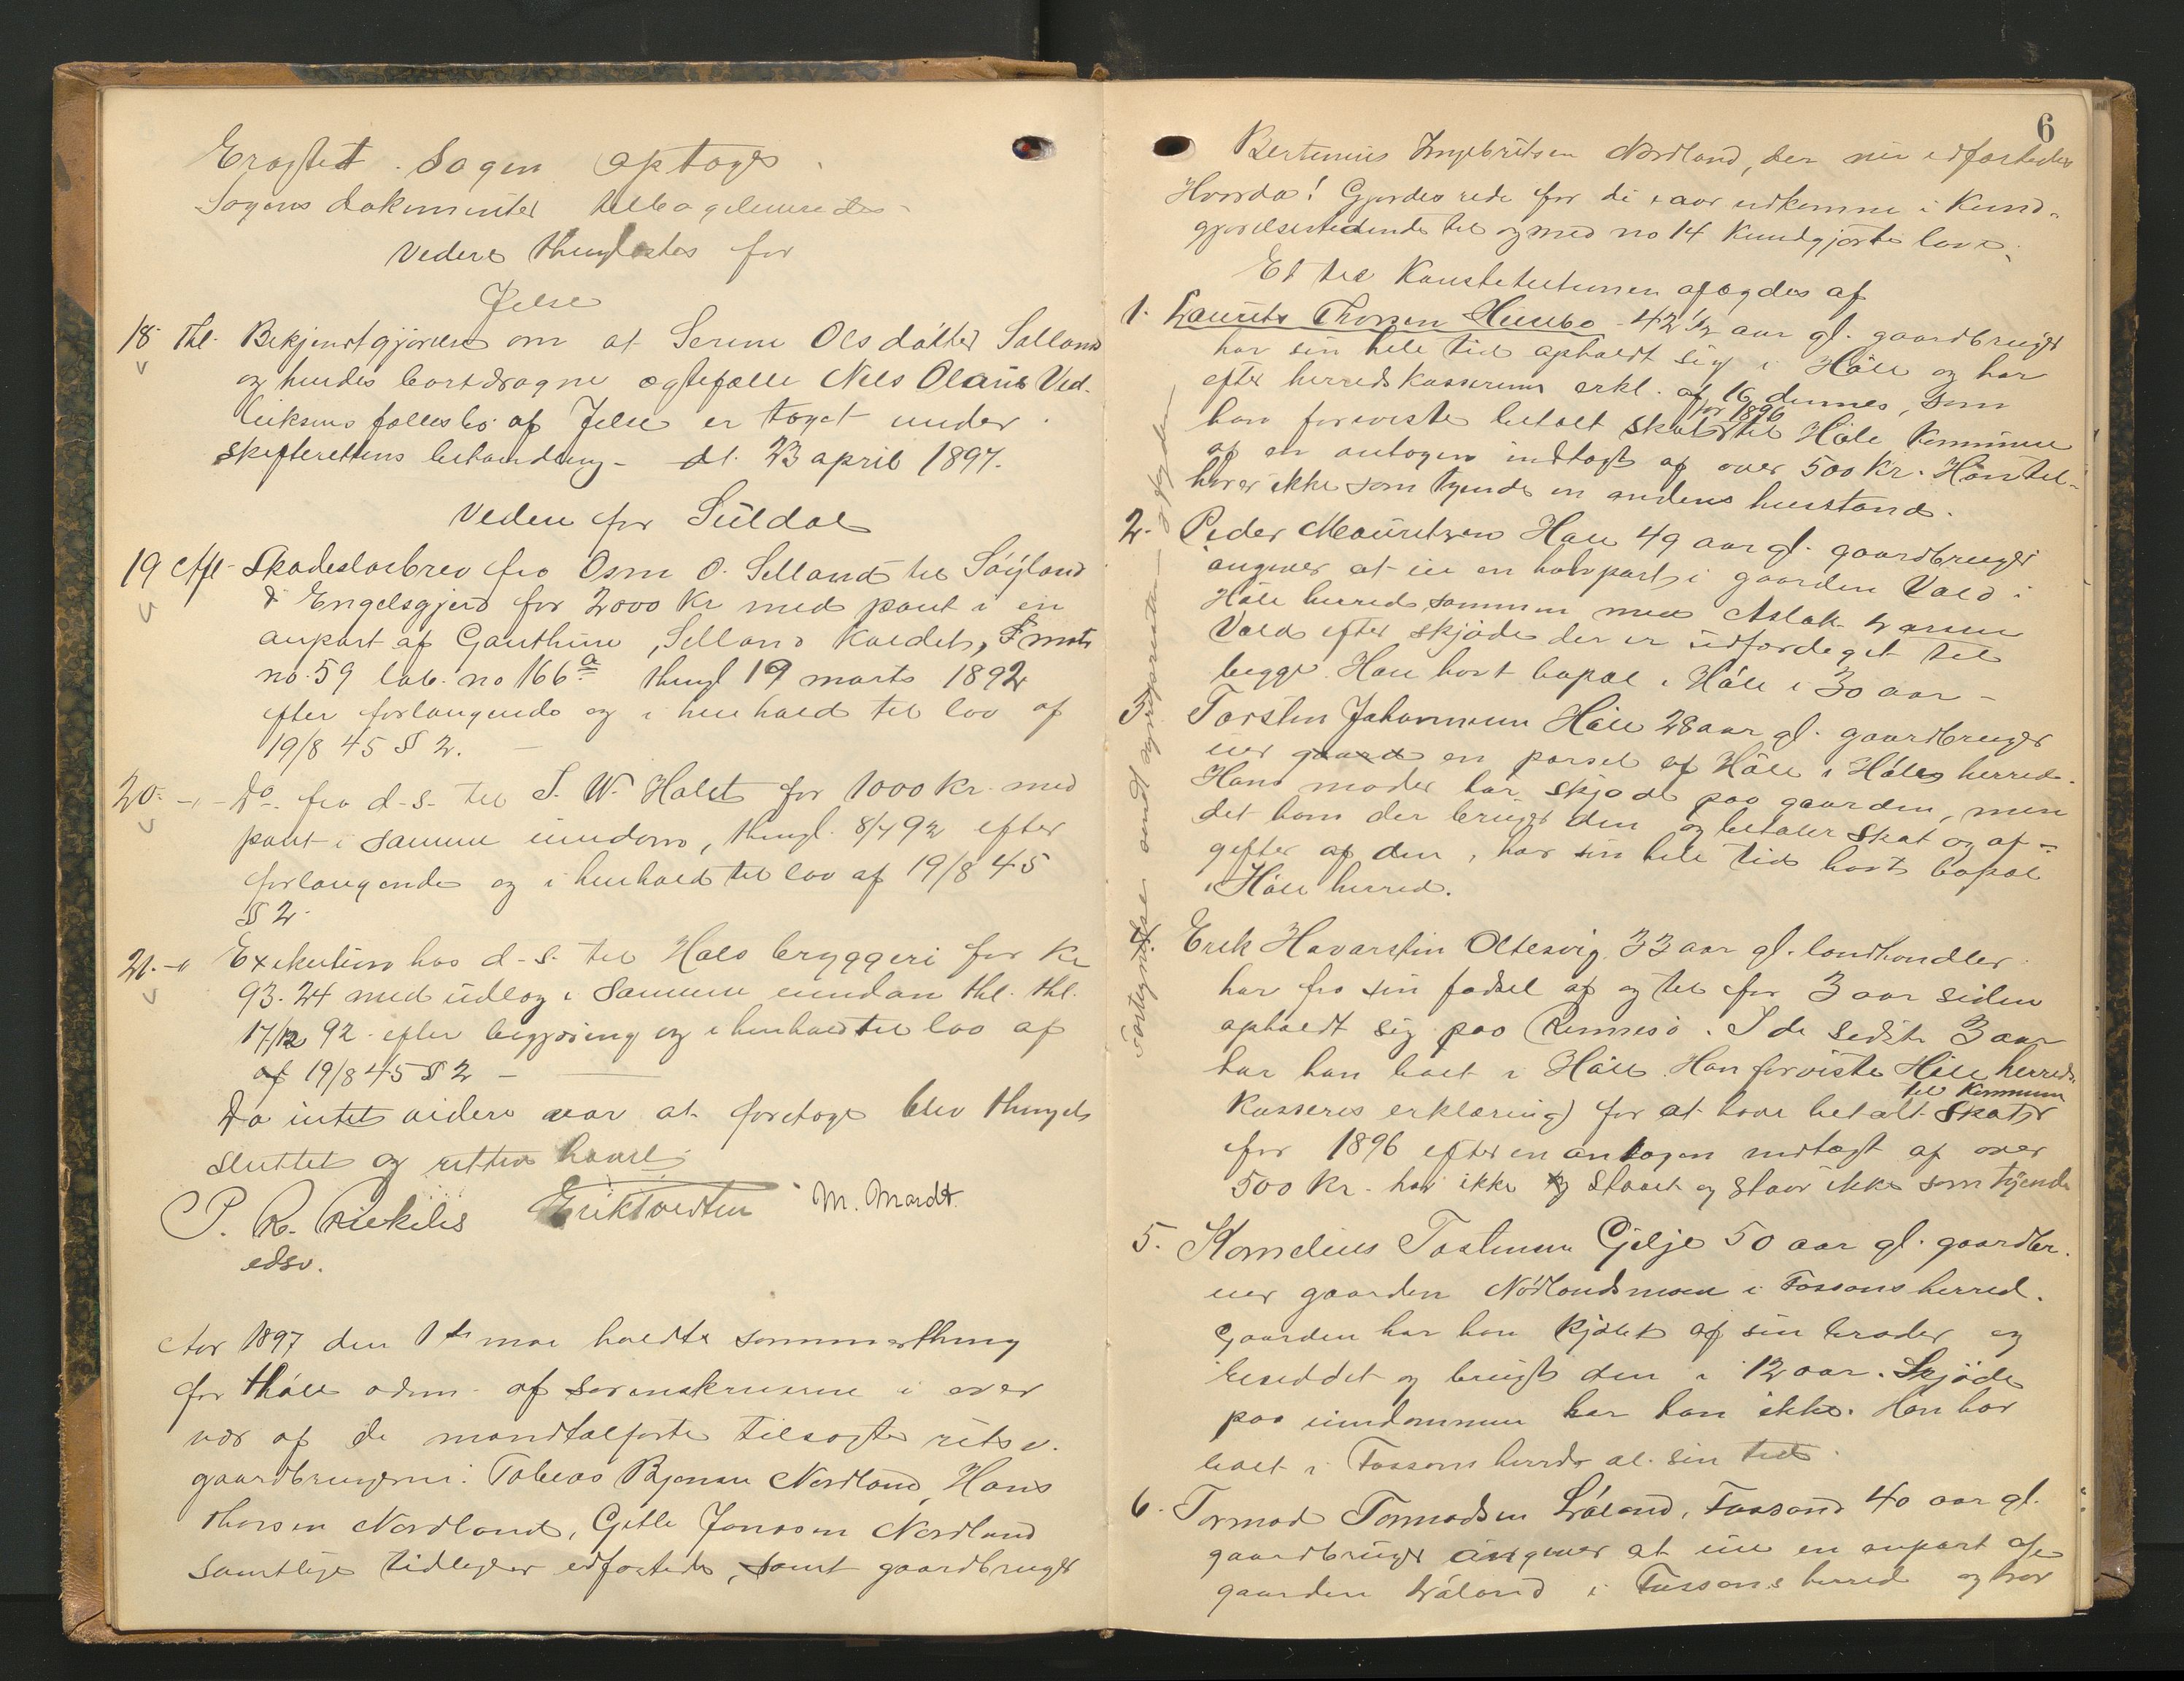 Eragtet. Sagen optages.
Sagens dokumenter tilbageleveredes.
Videre thinglæstes for
Jelse
18. Thl. Bekjendtgjörelse om at Serine Olsdatter Salland
og hendes bortdragne ægtefælle Nils Olaus Ved-
leiksens fællesbo af Jelse er taget under
skifterettens behandling - dt. 23 april 1897.
Videre for Suldal
19 Afl. Skadeslösbrev fra Osm O. Selland til Söyland
& Engelsgjerd for 2000 Kr med pant i en
anpart af Gauthun, Selland kaldet, matr
no. 59 löb. no 166 a thingl 19 marts 1892
efter forlangende og i henhold til lov af
19/8 45 § 2.
20. -"- Do. fra d. s. til S. W. Halst for 1000 kr. med
pant i samme eiendom, thingl. 8/7 92 efter
forlangende og i henhold til lov af 19/8 45
§ 2.
21. -" Exekution hos d. s. til Hals bryggeri for Kr
93.24 med udlæg i samme eiendom thl. thl.
17/12 92 efter begjæring og i henhold til lov af
af 19/8 45 § 2 -
Da intet videre var at foretage blev thinget
sluttet og retten hævet.
P. R. edsv. Erik Tveiten M. Mardt.
Aar 1897 den 1ste mai holdtes sommerthing
for Höle adm. af sorenskriveren i over
vær af de mandtalförte tilsagte retsv.
gaardbrugerne: Tobias Bjensen Nordland, Hans
Thorsen Nordland, Gitle Jonasen Nordland
samtlige tidligere edfæstede, samt gaardbruger
6
Bertinius Ingebritsen Nordland, der nu edfæstedes
Hvorda! Gjordes rede for de i aar udkomne i Kund-
gjörelsestidende til og med no 14 kundgjorte love.
Ed til Konstitutionen aflagdes af
1. Laurits Thorsen Husebö - 42 1/2 aar gl. gaardbruger
har sin hele tid opholdt sig i Höle og har
efter herredskassererens erkl. af 16 dennes, som
han foreviste betalt skat for 1896 til Höle kommune
af en antagen indtægt af over 500 Kr. Han til-
hörer ikke som tyende en andens husstand.
2. Peder Mauritzen Hole 49 aar gl. gaardbruger
angiver at eie en halvpart i gaarden Vald i
Höle herred, sammen med Aslak Larsen
Vald efter skjöde der er udfærdiget til
begge. Han havt bopæl i Höle i 30 aar -
3. Torsten Johannesen Höle 28 aar gl. gaardbruger
eier gaard en parsel af Höle i Höles herred.
Hans moder har skjöde paa gaarden, men
det ham der bruger den og betaler skat og af-
gifter af den, har sin hele tid havt bopæl
i Höle herred.
4. Erik Havarstin Oltesvig 33 aar gl. landhandler.
har fra sin födsel af og til for 3 aar siden
opholdt sig paa Rennesö. I de sidste 3 aar
har han boet i Höle. Han foreviste Höle herreds-
kasseres erklæring for at have betalt skat til Kommunen
for 1896 efter en antagen indtægt af over
500 kr. har ikke staaet og staar ikke som tyende
5. Kornelius Tostensen Gilje 50 aar gl. gaardbr.
eier gaarden Nödlandsmoen i Fossans herred.
Gaarden har han kjöbt af sin broder og
besiddet og brugt den i 12 aar. Skjöde
paa eiendommen har han ikke. Han har
boet i Fossans herred al sin tid.
6. Tormod Tormodsen Löland, Fossand 40 aar gl.
gaardbruger angiver at eie en anpart af
gaarden Löland i Fossans herred og har